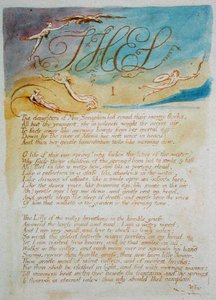 THEL
I
The daughters of Mne Seraphim led round their sunny flocks,
All but the youngest; she in paleness sought the secret air.
To fade away like morning beauty from her mortal day:
Down by the river of Adona her soft voice is heard:
And thus her gentle lamentation falls like morning dew.
O life of this our spring! why fades the lotus of the water?
Why fade these children of the spring? born but to smile & fall.
Ah! Thel is like a watry bow, and like a parting cloud,
Like a reflection in a glass, like shadows in the water,
Like dreams of infants, like a smile upon an infants face,
Like the doves voice, like transient day, like music in the air:
Ah! gentle may I lay me down, and gentle rest my head,
And gentle sleep the sleep of death, and gentle hear the voice
Of him that walketh in the garden in the evening time.
The Lilly of the valley breathing in the humble grass
Answer'd the lovely maid and said; I am a watry weed,
And I am very small, and love to dwell in lowly vales;
So weak, the gilded butterfly scarce perches on my head
Yet I am visited from heaven and he that smiles on all
Walks in the valley, and each morn over me spreads his hand
Saying, rejoice thou humble grass, thou new-born lilly flower,
Thou gentle maid of silent valleys, and of modest brooks:
For thou shalt be clothed in light, and fed with morning manna:
Till summers heat melts thee beside the fountains and the springs
To flourish in eternal vales: then why should Thel complain,
Why